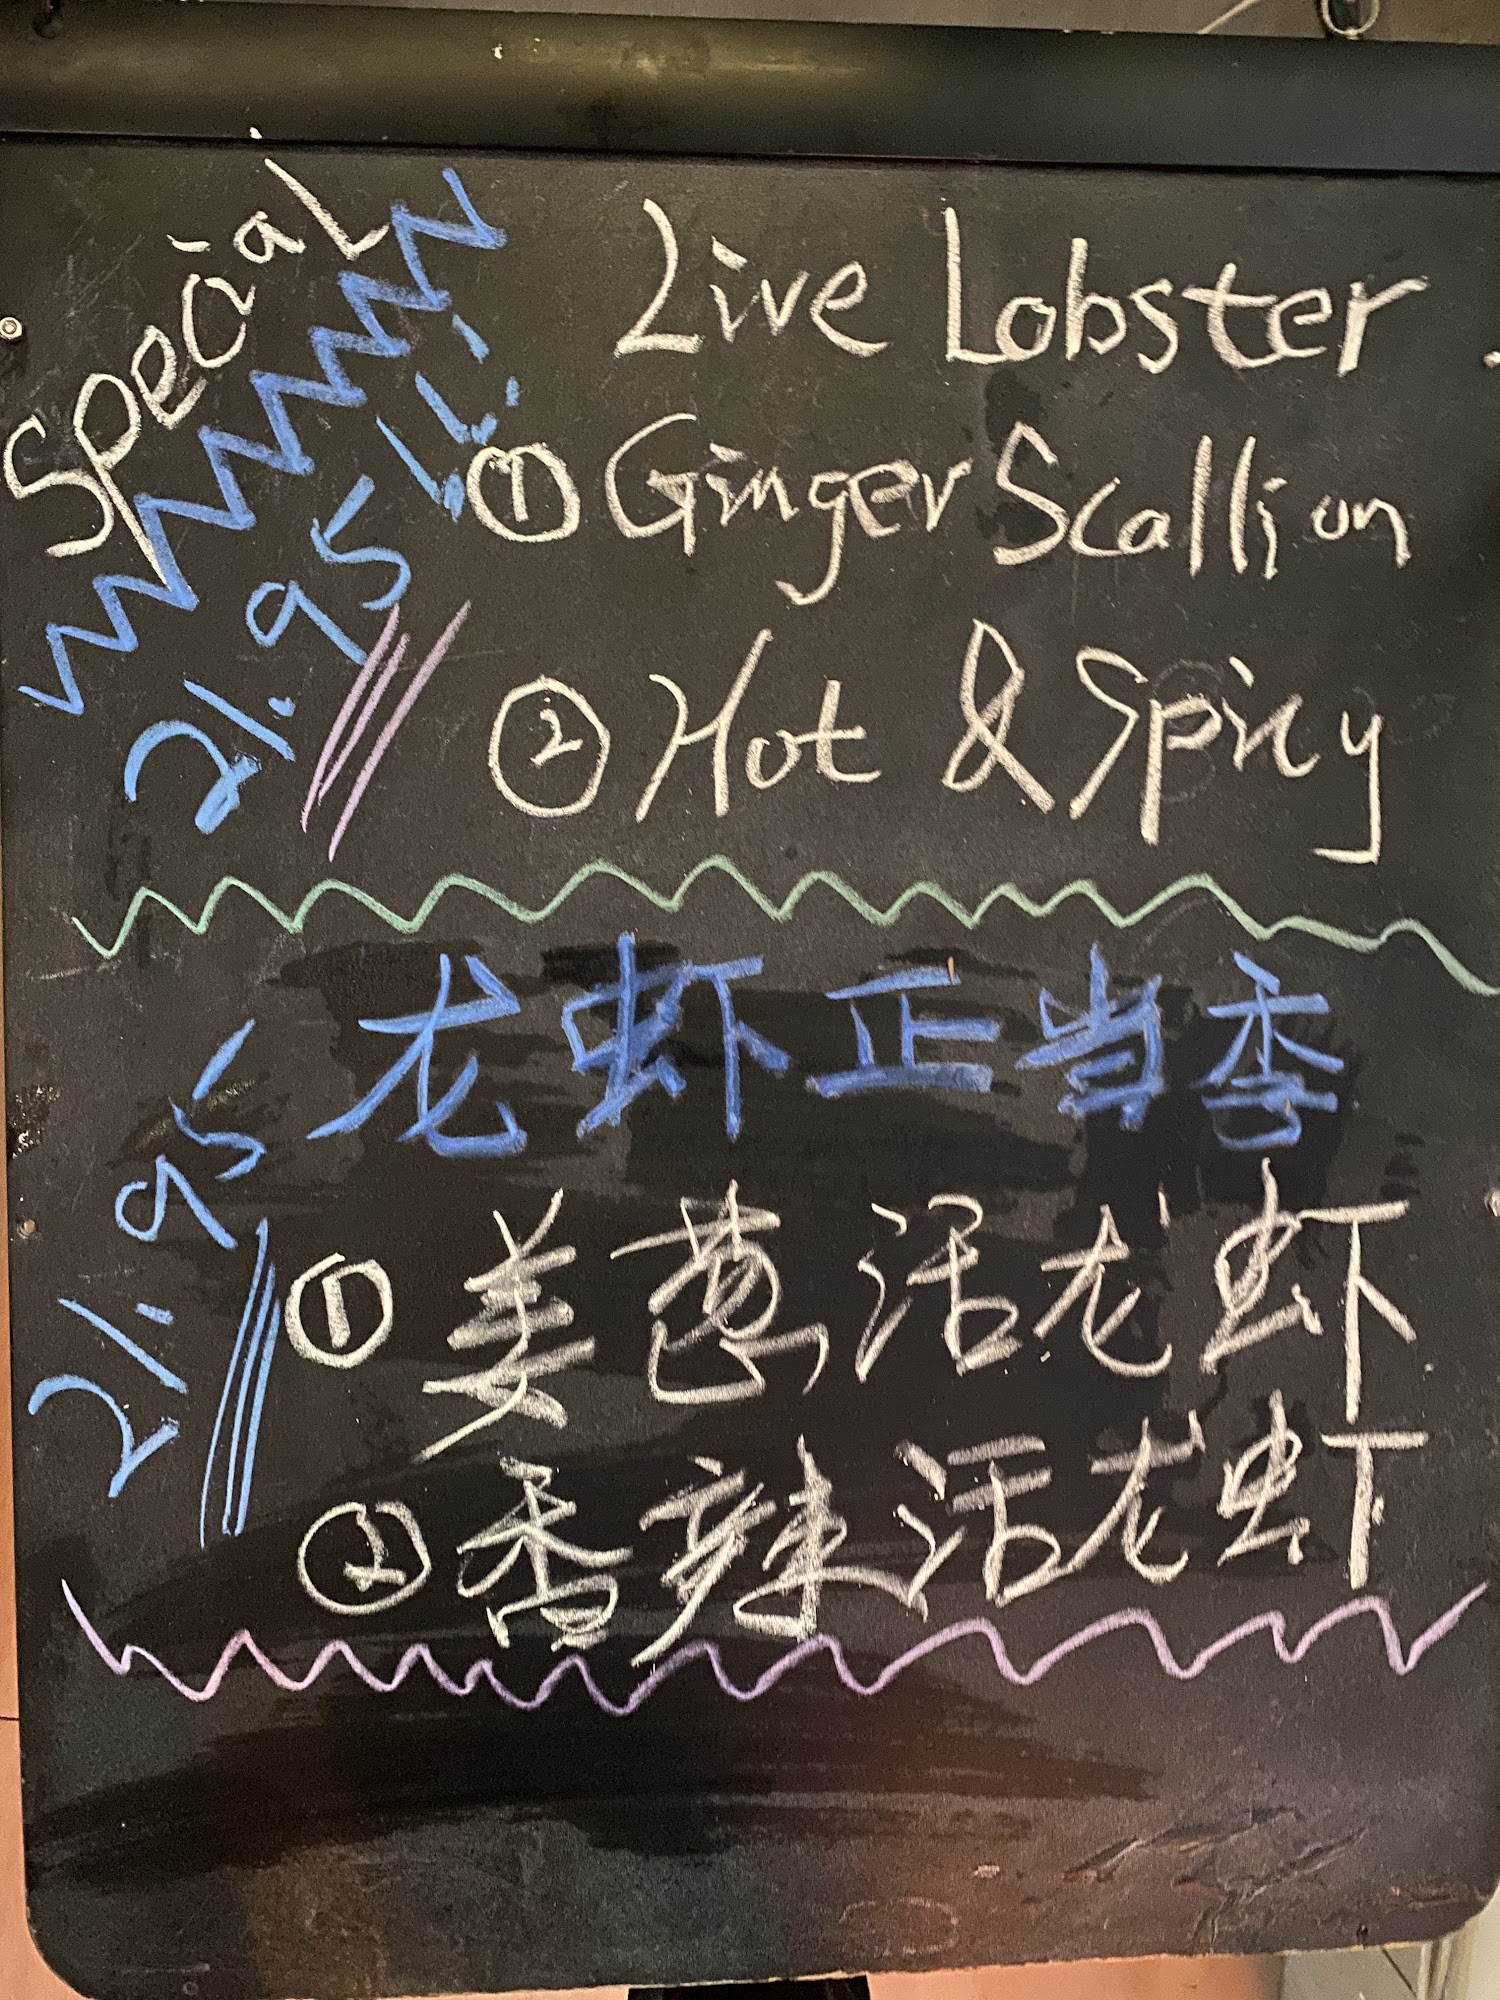 Special
21.95 !!!
Live Lobster
① Ginger Scallion
② Hot & Spicy
龙虾正当季
21.95
① 姜葱活龙虾
② 香辣活龙虾